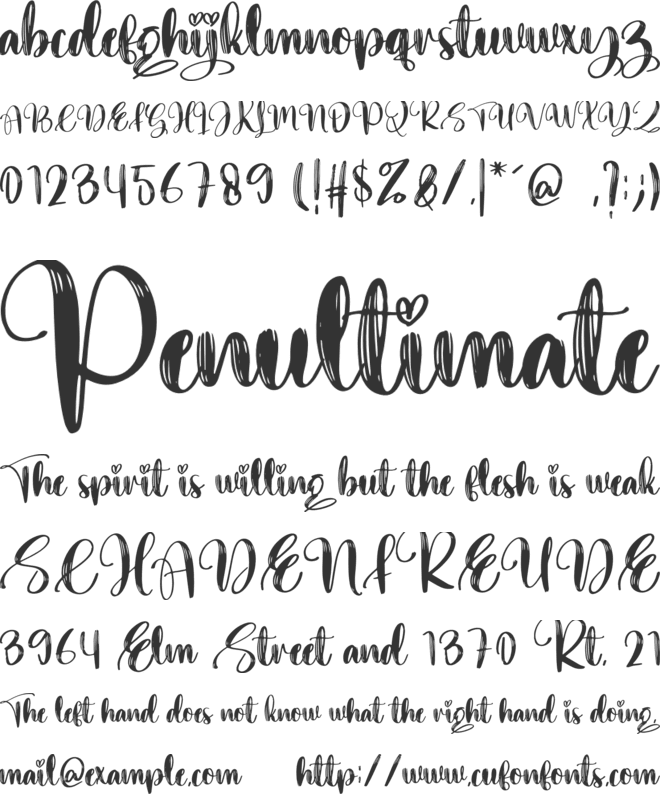 abcdefghijklmnopqrstuvwxyz
ABCDEFGHIJKLMNOPQRSTUVWXYZ
0123456789 (!#$%&/.|*´@ ,?:;)
Penultimate
The spirit is willing but the flesh is weak
SCHADENFREUDE
3964 Elm Street and 1370 Rt. 21
The left hand does not know what the right hand is doing.
mail@example.com http://www.cufonfonts.com